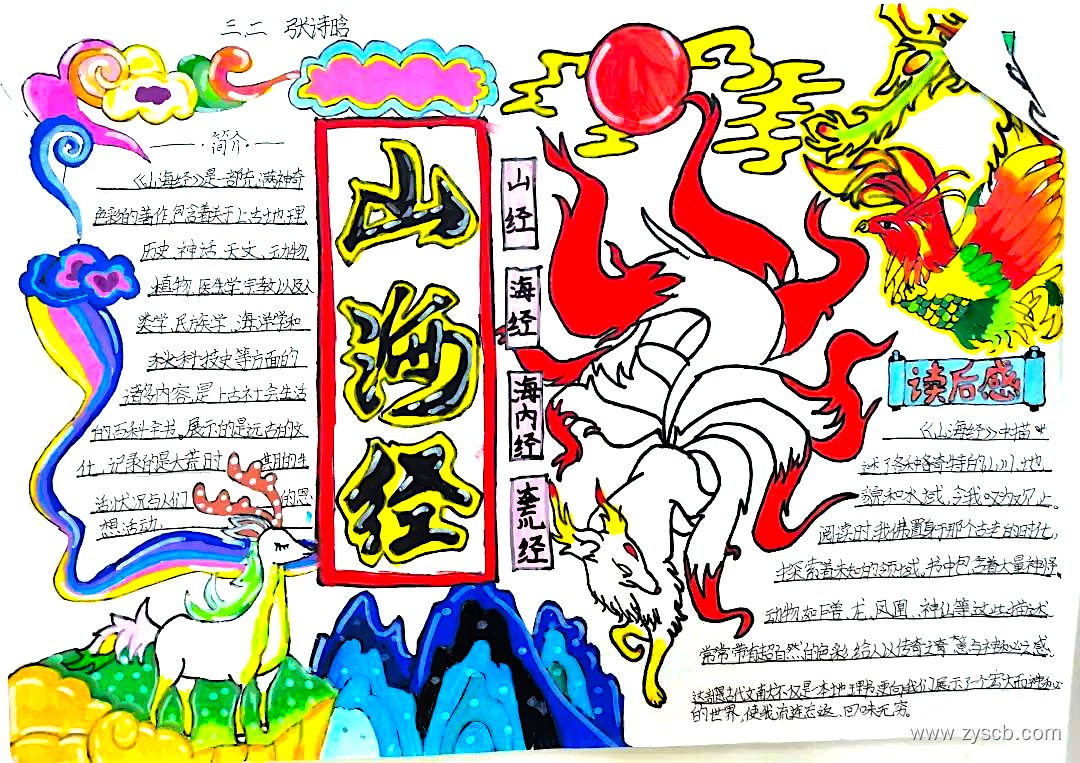 三二 张诗晗
简介
《山海经》是一部充满神奇
色彩的著作,包含着关于上古地理
历史、神话、天文、动物
植物、医学、宗教以及人
类学、民族学、海洋学和
科技史等方面的
诸多内容,是上古社会生活
的百科全书。展示的是远古的文
化,记录的是大荒时 期的生
活状况与人们 的思
想活动
山海经
山经
海经
海内经
大荒经
读后感
《山海经》中描
述了各种奇特的山川、地
和水域,令我叹为观止。
阅读时,我佛置身于那个古老的时代,
探索着未知的领域。书中包含着大量神怪、
动物,如巨兽、龙、凤凰、神仙等,这些描述
常常带有超自然的色彩,给人以传奇之
这部古代文献不仅是本地理书,更向我们展示了一个宏大而神秘
的世界,使我流连忘返,回味无穷。
www.zyscb.com